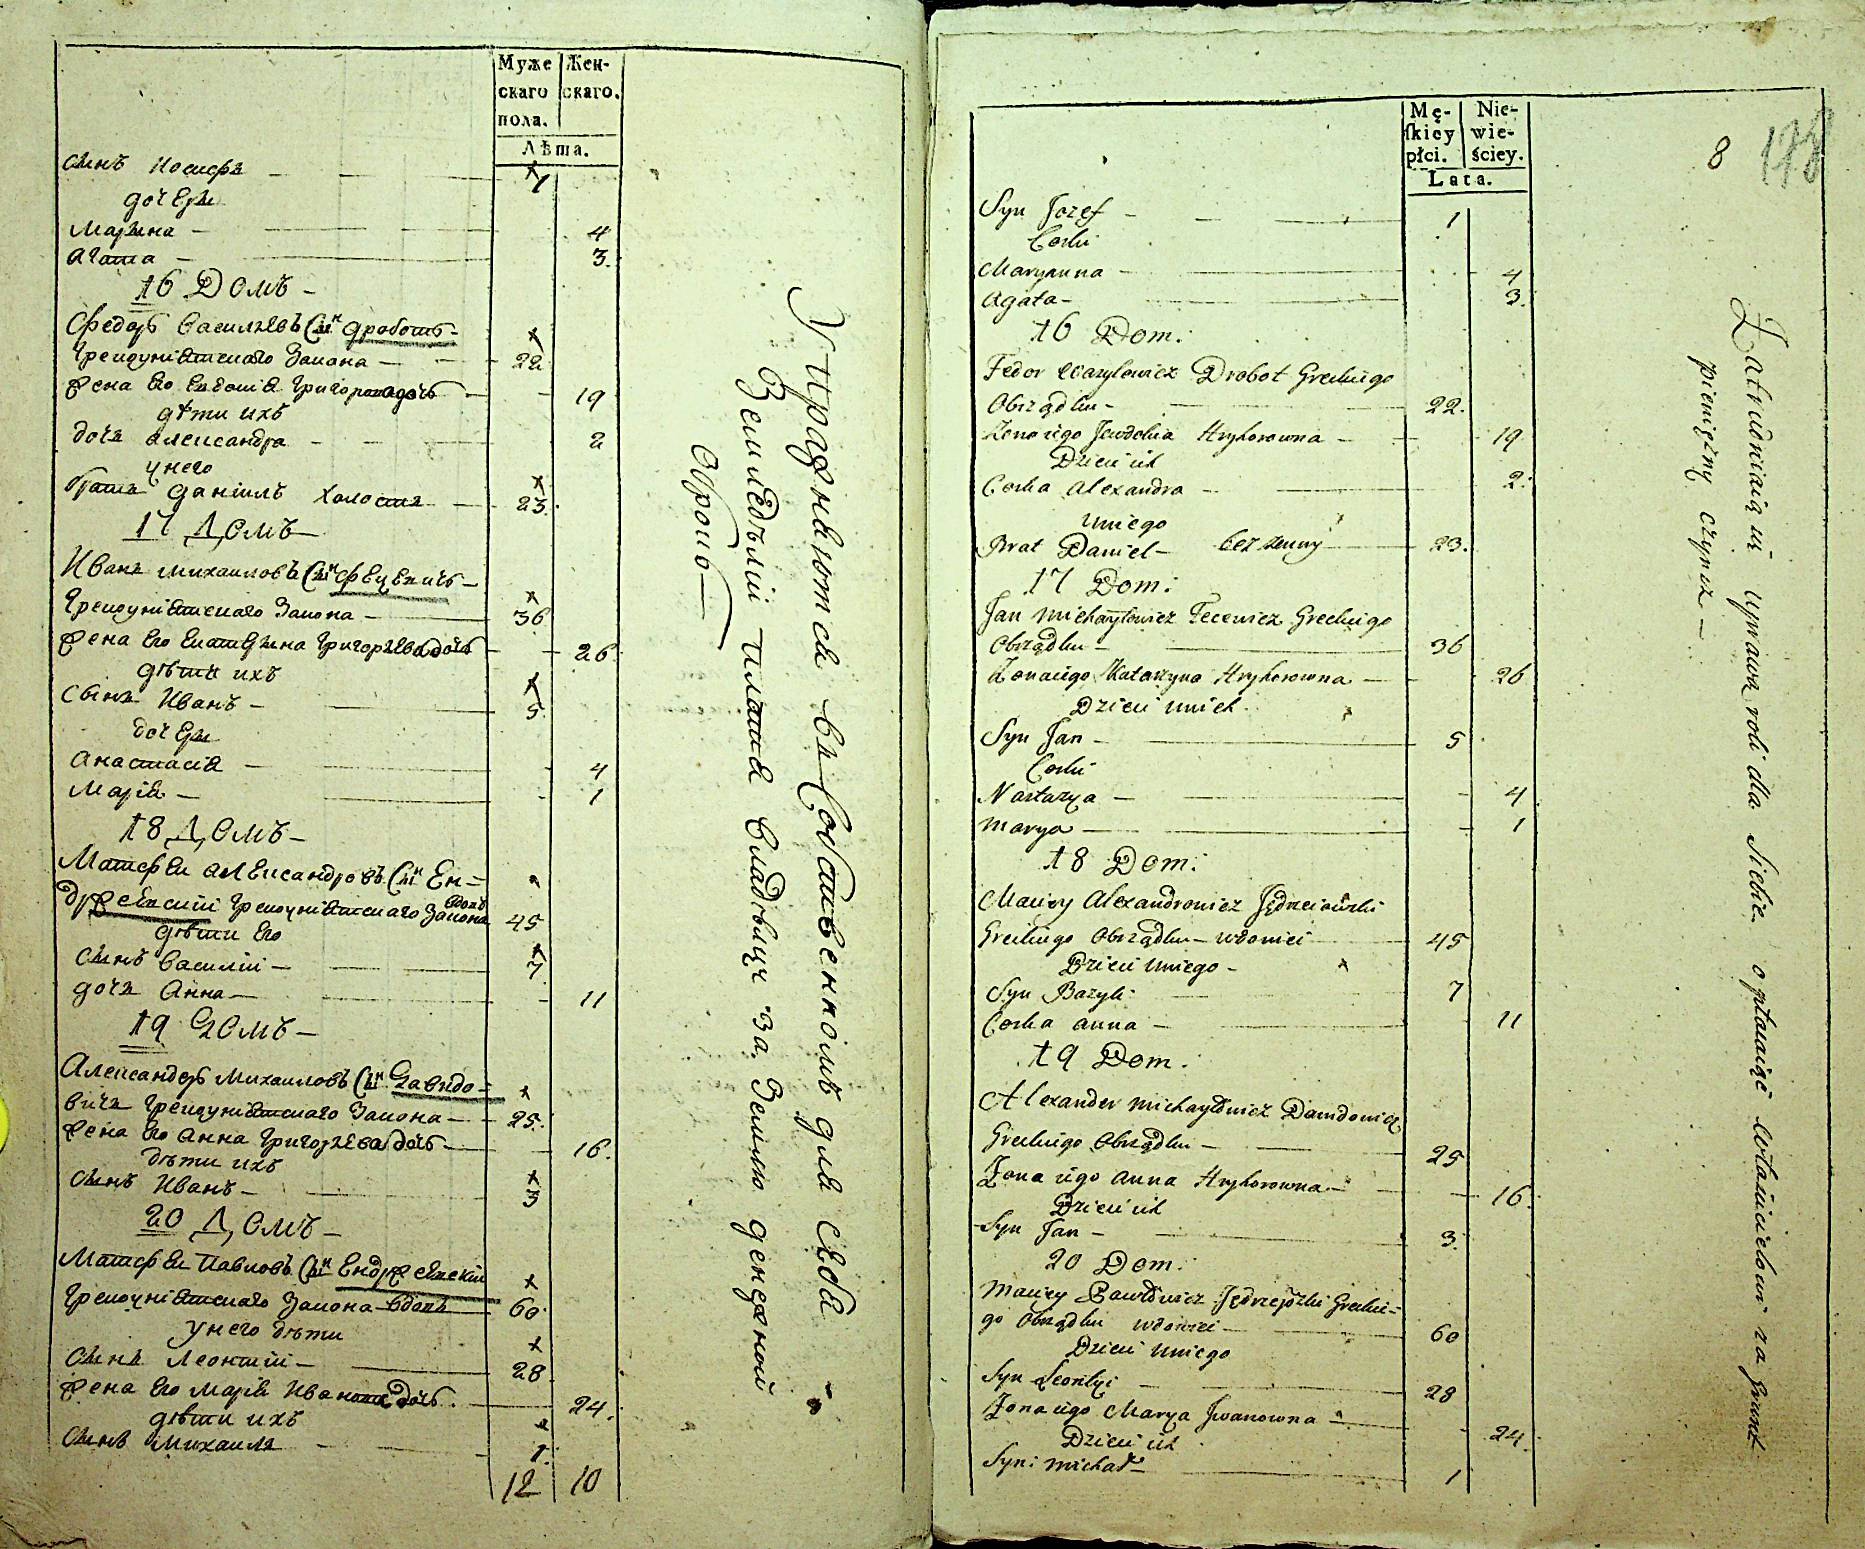 Муже
скаго
пола.
Жен-
скаго.
Лѣта.
сынъ Иосифъ — 1
дочери
Марына — 4
Агата — 3.
16 Домъ —
Федоръ Васильевъ Сынъ Дроботъ
Грекоуніятскаго Закона — 22
Жена его Евдокія Григорова дочь — 19
дѣти ихъ
дочь Александра — 2
у него
братъ Даніилъ холостъ — 23.
17 Домъ —
Иванъ Михаиловъ Сынъ Фецевичъ —
Грекоуніятскаго Закона — 36
Жена его Екатерина Григорьева дочь — 26.
дѣти ихъ
Сынъ Иванъ — 5
дочери
Анастасія — 4
Марія — 1
18 Домъ —
Матфей Александровъ Сынъ Ен=
држеевскій Грекоуніятскаго Закона вдовъ 45
дѣти его
Сынъ Василій — 7
дочь Анна — 11
19 Домъ —
Александеръ Михаиловъ Сынъ Давидо=
вичъ Грекоуніятскаго Закона — 25.
Жена его Анна Григорьева дочь — 16.
дѣти ихъ
Сынъ Иванъ — 3
20 Домъ —
Матфей Павловъ Сынъ Ендржеевскій
Грекоуніятскаго Закона вдовъ 60
у него дѣти
Сынъ Леонтій — 28
Жена его Марія Иванова дочь. 24.
дѣти ихъ
Сынъ Михаилъ — 1.
12 10
Упражняются въ Собственномъ для себя
Земледѣліи платя владѣлцу за Землю денежной
Оброкъ —
Mę-
ſkiey
płci.
Nie-
wie-
ściey.
Lata.
8
Syn Jozef — 1
Corki
Maryanna — 4
Agata — 3.
16 Dom:
Fedor Wasylowicz Drobot Greckiego
Obrządku — 22.
Zona iego Jewdokia Hryhorowna — 19
Dzieci ich
Corka Alexandra — 2.
u niego
Brat Daniel — bezżenny — 23.
17 Dom:
Jan Michayłowicz Fecewicz Greckiego
Obrządku — 36
Zona iego Katarzyna Hryhorowna — 26
Dzieci u nich
Syn Jan — 5
Corki
Nastazya — 4
Marya — 1
18 Dom:
Maciey Alexandrowicz Jędrzeiewski
Greckiego Obrządku — wdowiec 45
Dzieci u niego —
Syn Bazyli 7
Corka Anna — 11
19 Dom.
Alexander Michayłowicz Dawidowicz
Greckiego Obrządku — 25
Zona iego Anna Hryhorowna — 16.
Dzieci ich
Syn Jan — 3.
20 Dom:
Maciey Pawłowicz Jędrzejewski Greckie=
go Obrządku wdowiec — 60
Dzieci u niego
Syn Leontyi — 28
Zona iego Marya Iwanowna — 24.
Dzieci ich
Syn: Michał — 1
Zatrudniaią się uprawą roli dla siebie opłacaiąc właścicielowi za grunt
pieniężny czynsz —